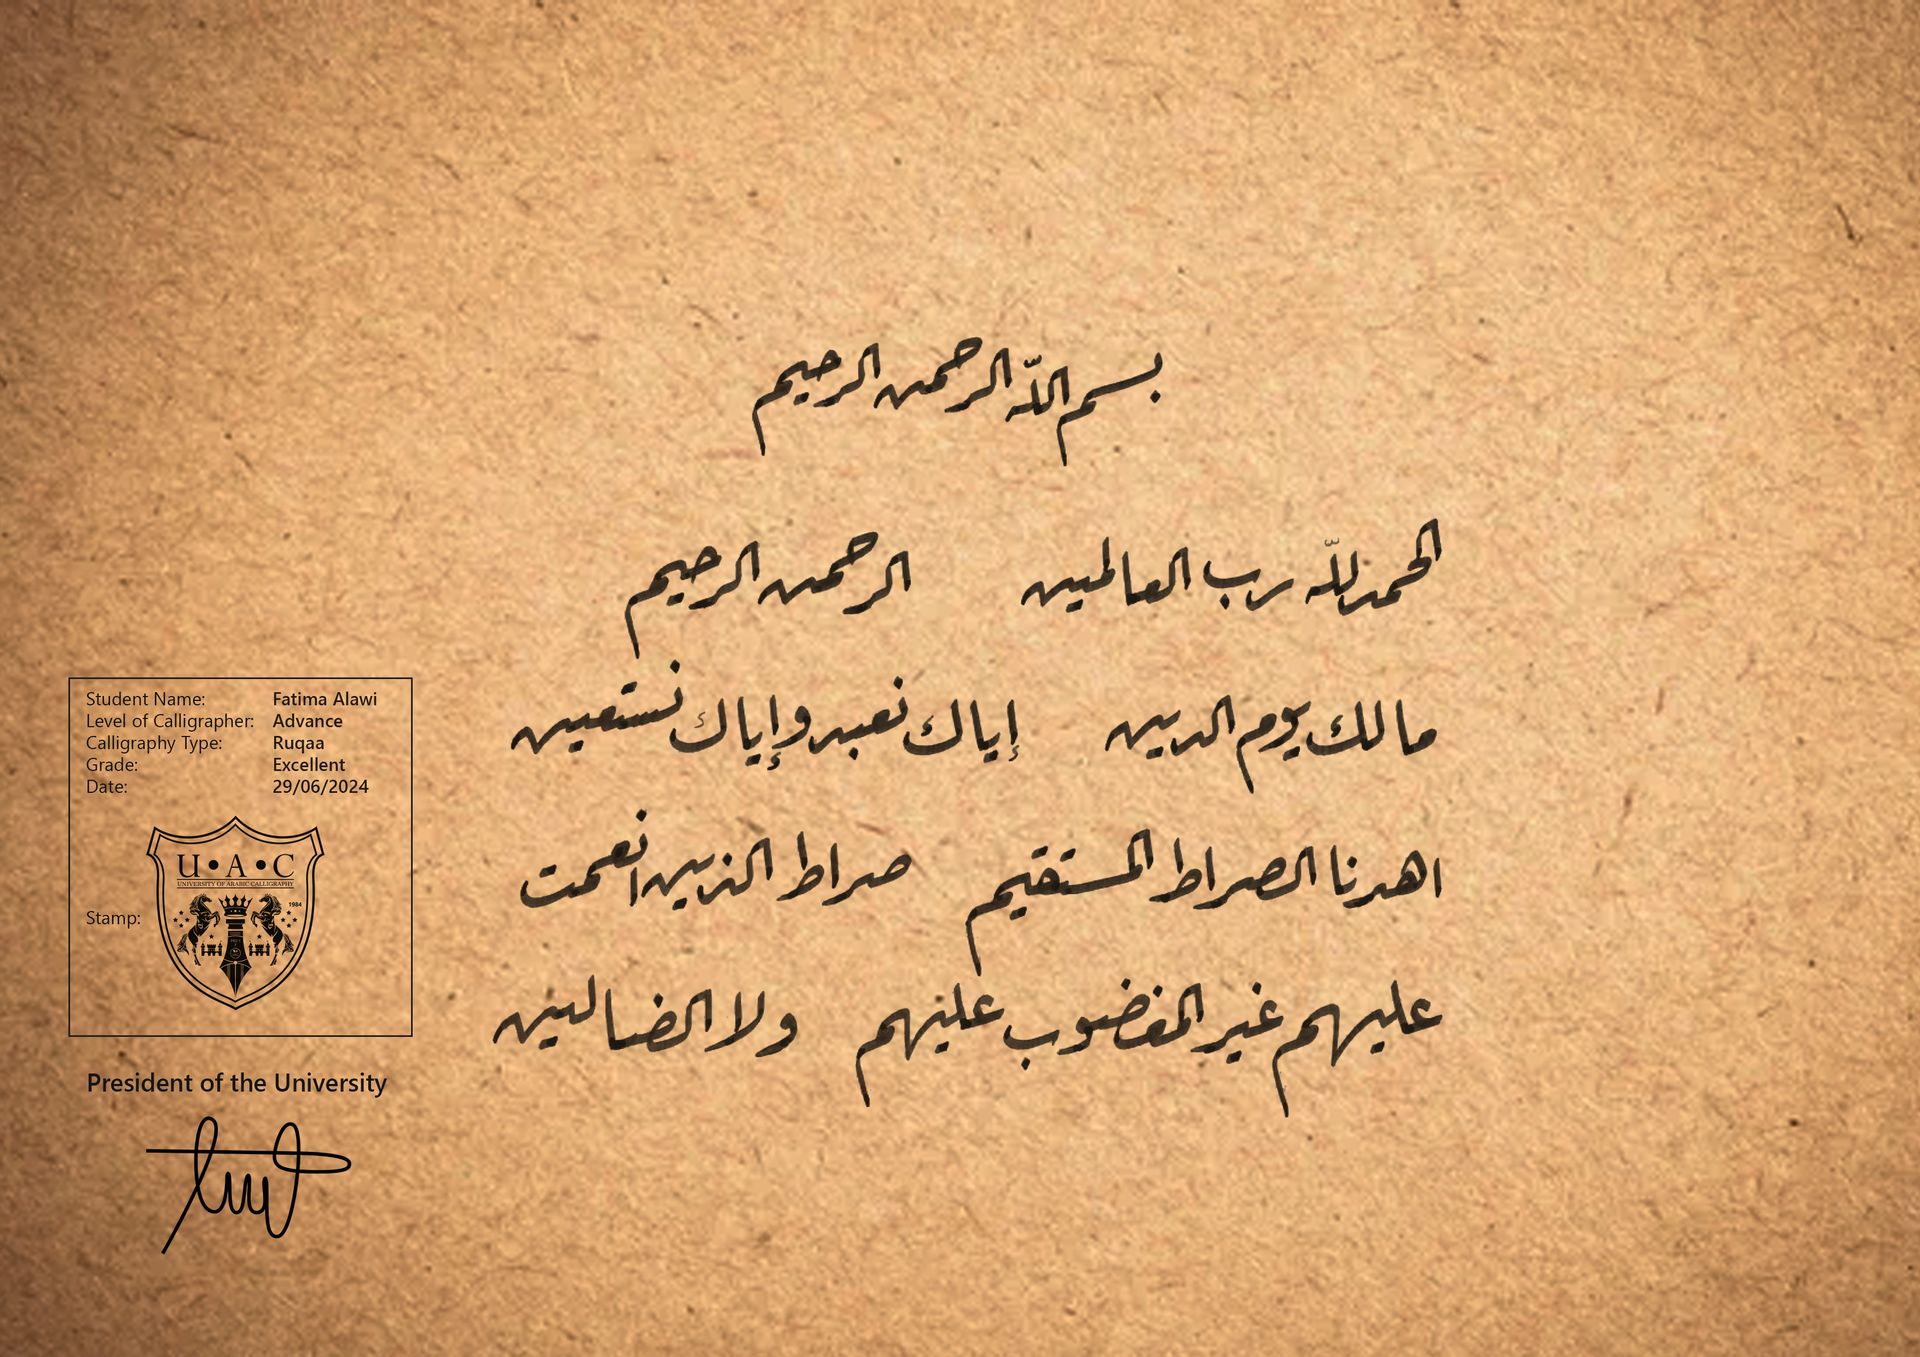 بسم اللّه الرحمن الرحيم
الحمد للّه رب العالمين    الرحمن الرحيم
مالك يوم الدين    إياك نعبد وإياك نستعين
اهدنا الصراط المستقيم    صراط الذين انعمت
عليهم غير المغضوب عليهم    ولا الضالين
Student Name: Fatima Alawi
Level of Calligrapher: Advance
Calligraphy Type: Ruqaa
Grade: Excellent
Date: 29/06/2024
U•A•C
UNIVERSITY OF ARABIC CALLIGRAPHY
1984
Stamp:
President of the University